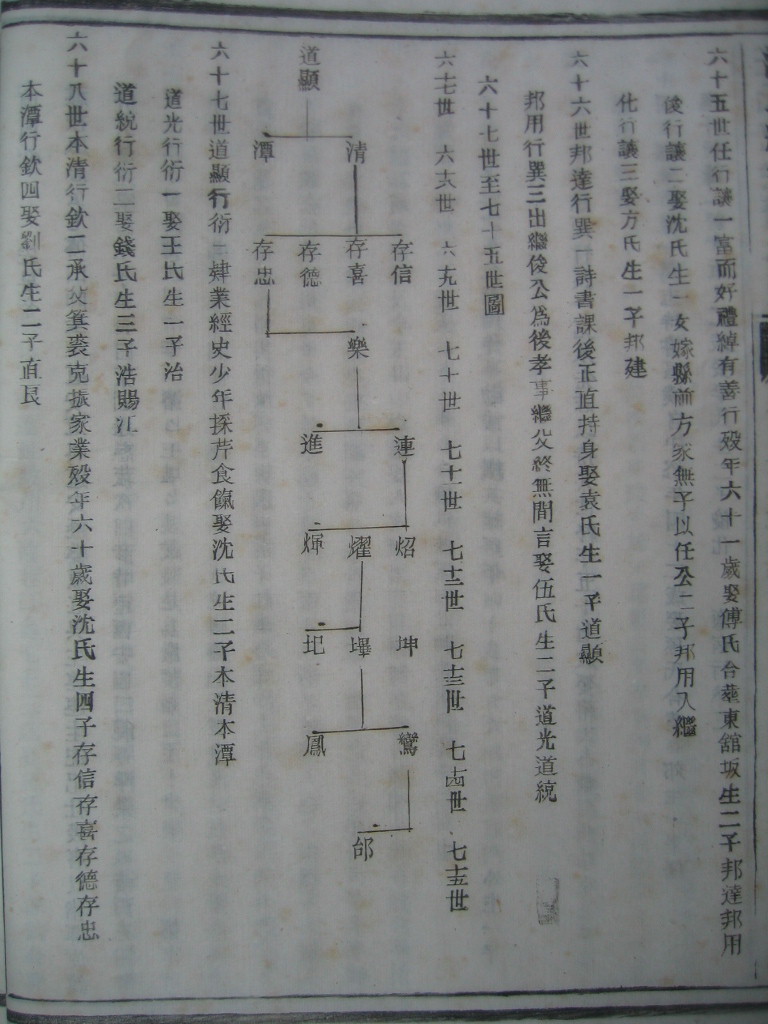 六十五世任行讓一富而好禮綽有善行殁年六十一歲娶傅氏台華東舘坂生二子邦達邦用
俊行讓二娶沈氏生一女嫁縣前方家無子以任公二子邦用入繼
化行讓三娶方氏生一子邦建
六十六世邦達行異一詩書課後正直持身娶袁氏生一子道顯
邦用行異三出繼後公為後孝事繼父終無間言娶伍氏生二子道光道統
六十七世至七十五世圖
六七世 六八世 六九世 七十世 七十一世 七十二世 七十三世 七十四世 七十五世
道顯
清 潭
存信 存喜 存德 存忠
樂
連 進
炤 燿 煇
坤 墿 圯
鸞 鳳
邰
六十七世道顯行衍三肄業經史少年採芹食餼娶沈氏生二子本清本潭
道光行衍一娶王氏生一子治
道統行衍二娶錢氏生三子浩賜江
六十八世本清行欽二承父箕裘克振家業殁年六十歲娶沈氏生四子存信存喜存德存忠
本潭行欽四娶劉氏生二子直良